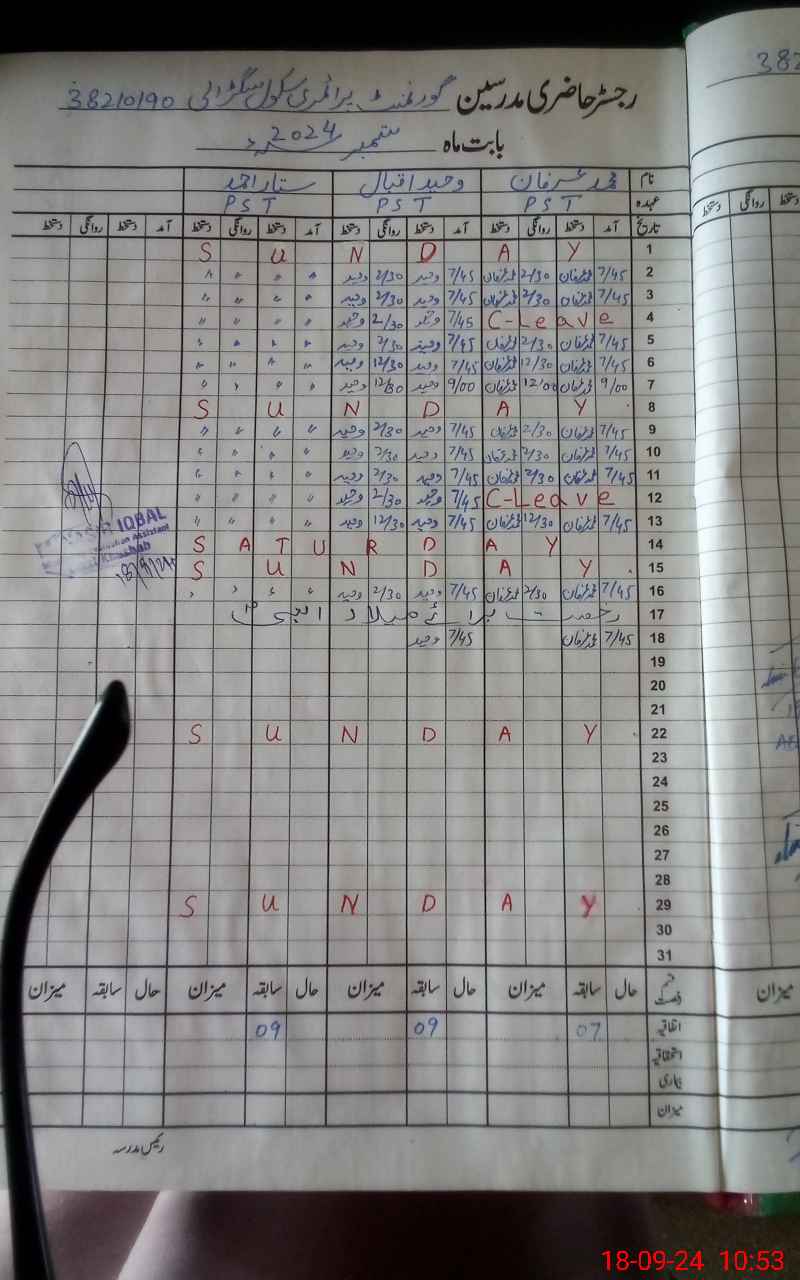 رجسٹر حاضری مدرسین گورنمنٹ پرائمری سکول 38210190
بابت ماہ ستمبر 2024ء
نام محمد عرفان وحید اقبال ستار احمد
عہدہ PST PST PST
تاریخ آمد دستخط روانگی دستخط آمد دستخط روانگی دستخط آمد دستخط روانگی دستخط آمد دستخط روانگی دستخط
1 S U N D A Y
2 7/45 محمد عرفان 2/30 محمد عرفان 7/45 وحید 2/30 وحید 〃 〃 〃 〃
3 7/45 محمد عرفان 2/30 محمد عرفان 7/45 وحید 2/30 وحید 〃 〃 〃 〃
4 C-Leave 7/45 وحید 2/30 وحید 〃 〃 〃 〃
5 7/45 محمد عرفان 2/30 محمد عرفان 7/45 وحید 2/30 وحید 〃 〃 〃 〃
6 7/45 محمد عرفان 12/30 محمد عرفان 7/45 وحید 12/30 وحید 〃 〃 〃 〃
7 9/00 محمد عرفان 12/00 محمد عرفان 9/00 وحید 12/30 وحید 〃 〃 〃 〃
8 S U N D A Y
9 7/45 محمد عرفان 2/30 محمد عرفان 7/45 وحید 2/30 وحید 〃 〃 〃 〃
10 7/45 محمد عرفان 2/30 محمد عرفان 7/45 وحید 2/30 وحید 〃 〃 〃 〃
11 7/45 محمد عرفان 2/30 محمد عرفان 7/45 وحید 2/30 وحید 〃 〃 〃 〃
12 C-Leave 7/45 وحید 2/30 وحید 〃 〃 〃 〃
13 7/45 محمد عرفان 12/30 محمد عرفان 7/45 وحید 12/30 وحید 〃 〃 〃 〃
IQBAL
18/9/24
14 S A T U R D A Y
15 S U N D A Y
16 7/45 محمد عرفان 2/30 محمد عرفان 7/45 وحید 2/30 وحید 〃 〃 〃 〃
17 رخصت برائے میلاد النبیؐ
18 7/45 محمد عرفان 7/45 وحید
19
20
21
22 S U N D A Y
23
24
25
26
27
28
29 S U N D A Y
30
31
قسم رخصت حال سابقہ میزان حال سابقہ میزان حال سابقہ میزان حال سابقہ میزان
اتفاقیہ 07 09 09
استحقاقیہ
بیماری
میزان
رئیس مدرسہ
382
دستخط روانگی دستخط
میزان
18-09-24 10:53